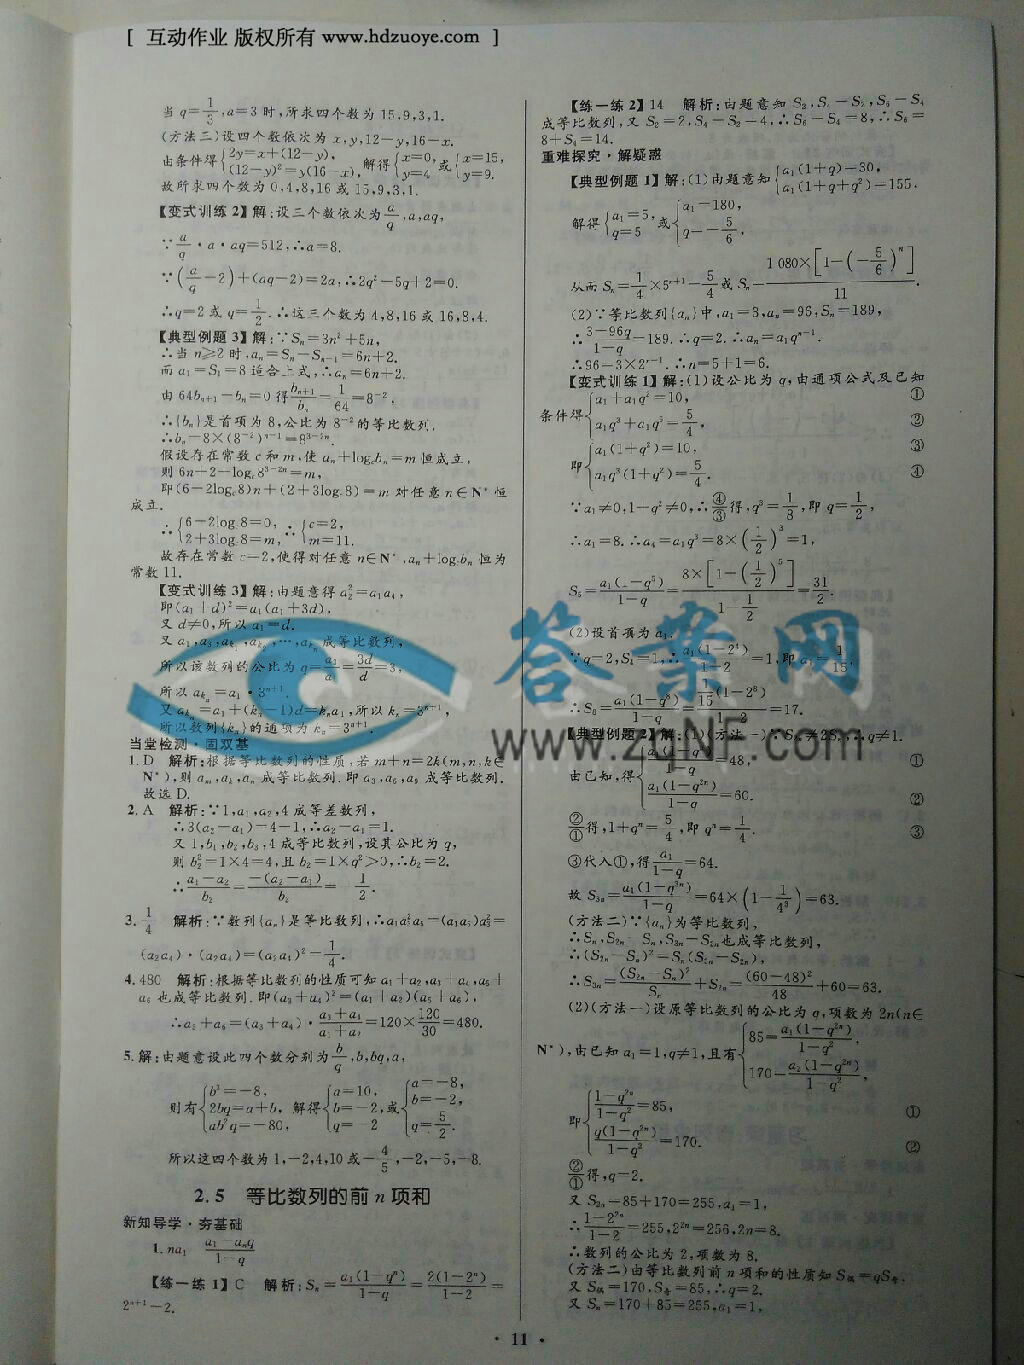 [ 互动作业 版权所有 www.hdzuoye.com ]
当 q=1/3,a=3 时,所求四个数为 15,9,3,1.
(方法二)设四个数依次为 x,y,12-y,16-x.
由条件得{2y=x+(12-y), (12-y)²=y(16-x), 解得{x=0, y=4 或{x=15, y=9.
故所求四个数为 0,4,8,16 或 15,9,3,1.
【变式训练 2】解:设三个数依次为 a/q,a,aq,
∵a/q·a·aq=512,∴a=8.
∵(a/q-2)+(aq-2)=2a,∴2q²-5q+2=0.
∴q=2 或 q=1/2.∴这三个数为 4,8,16 或 16,8,4.
【典型例题 3】解:∵Sₙ=3n²+5n,
∴当 n≥2 时,aₙ=Sₙ-Sₙ₋₁=6n+2.
而 a₁=S₁=8 适合上式,∴aₙ=6n+2.
由 64bₙ₊₁-bₙ=0 得 bₙ₊₁/bₙ=1/64=8⁻²,
∴{bₙ}是首项为 8,公比为 8⁻² 的等比数列,
∴bₙ=8×(8⁻²)ⁿ⁻¹=8³⁻²ⁿ.
假设存在常数 c 和 m,使 aₙ+log_c bₙ=m 恒成立,
则 6n+2+log_c 8³⁻²ⁿ=m,
即(6-2log_c 8)n+(2+3log_c 8)=m 对任意 n∈N* 恒
成立.
∴{6-2log_c 8=0, 2+3log_c 8=m, ∴{c=2, m=11.
故存在常数 c=2,使得对任意 n∈N*,aₙ+log_c bₙ 恒为
常数 11.
【变式训练 3】解:由题意得 a₂²=a₁a₄,
即(a₁+d)²=a₁(a₁+3d),
又 d≠0,所以 a₁=d.
又 a₁,a₃,aₖ₁,aₖ₂,…,aₖₙ 成等比数列,
所以该数列的公比为 q=a₃/a₁=3d/d=3,
所以 aₖₙ=a₁·3ⁿ⁺¹.
又 aₖₙ=a₁+(kₙ-1)d=kₙa₁,所以 kₙ=3ⁿ⁺¹,
所以数列{kₙ}的通项为 kₙ=3ⁿ⁺¹.
当堂检测·固双基
1. D 解析:根据等比数列的性质,若 m+n=2k(m,n,k∈
N*),则 aₘ,aₖ,aₙ 成等比数列.即 a₃,a₆,a₉ 成等比数列.
故选 D.
2. A 解析:∵1,a₁,a₂,4 成等差数列,
∴3(a₂-a₁)=4-1,∴a₂-a₁=1.
又 1,b₁,b₂,b₃,4 成等比数列,设其公比为 q,
则 b₂²=1×4=4,且 b₂=1×q²>0,∴b₂=2.
∴(a₁-a₂)/b₂=-(a₂-a₁)/b₂=-1/2.
3. 1/4 解析:∵数列{aₙ}是等比数列,∴a₁a₃²a₅=(a₁a₅)a₃²=
(a₂a₄)·(a₂a₄)=(a₂a₄)²=1/4.
4. 480 解析:根据等比数列的性质可知 a₁+a₂,a₃+a₄,a₅+
a₆ 也成等比数列.即(a₃+a₄)²=(a₁+a₂)(a₅+a₆),
∴a₅+a₆=(a₃+a₄)·(a₃+a₄)/(a₁+a₂)=120×120/30=480.
5. 解:由题意设此四个数分别为 b/q,b,bq,a,
则有{b³=-8, 2bq=a+b, ab²q=-80, 解得{a=10, b=-2, q=-2 或{a=-8, b=-2, q=5/2.
所以这四个数为 1,-2,4,10 或 -4/5,-2,-5,-8.
2.5 等比数列的前 n 项和
新知导学·夯基础
1. na₁ (a₁-aₙq)/(1-q)
【练一练 1】C 解析:Sₙ=a₁(1-qⁿ)/(1-q)=2(1-2ⁿ)/(1-2)=
2ⁿ⁺¹-2.
【练一练 2】14 解析:由题意知 S₂,S₄-S₂,S₆-S₄
成等比数列,又 S₂=2,S₄-S₂=4,∴S₆-S₄=8,∴S₆=
8+S₄=14.
重难探究·解疑惑
【典型例题 1】解:(1)由题意知{a₁(1+q)=30, a₁(1+q+q²)=155.
解得{a₁=5, q=5 或{a₁=180, q=-5/6,
从而 Sₙ=1/4×5ⁿ⁺¹-5/4 或 Sₙ=1 080×[1-(-5/6)ⁿ]/11.
(2)∵等比数列{aₙ}中,a₁=3,aₙ=96,Sₙ=189,
∴(3-96q)/(1-q)=189.∴q=2.∴aₙ=a₁qⁿ⁻¹.
∴96=3×2ⁿ⁻¹.∴n=5+1=6.
【变式训练 1】解:(1)设公比为 q,由通项公式及已知
条件得{a₁+a₁q²=10, ① a₁q³+a₁q⁵=5/4. ②
即{a₁(1+q²)=10, ③ a₁q³(1+q²)=5/4. ④
∵a₁≠0,1+q²≠0,∴④/③得,q³=1/8,即 q=1/2,
∴a₁=8.∴a₄=a₁q³=8×(1/2)³=1,
S₅=a₁(1-q⁵)/(1-q)=8×[1-(1/2)⁵]/(1-1/2)=31/2.
(2)设首项为 a₁.
∵q=2,S₄=1,∴a₁(1-2⁴)/(1-2)=1,即 a₁=1/15.
∴S₈=a₁(1-q⁸)/(1-q)=1/15(1-2⁸)/(1-2)=17.
【典型例题 2】解:(1)(方法一)∵S₂ₙ≠2Sₙ,∴q≠1.
由已知,得{a₁(1-qⁿ)/(1-q)=48, ① a₁(1-q²ⁿ)/(1-q)=60. ②
②/①得,1+qⁿ=5/4,即 qⁿ=1/4. ③
③代入①,得 a₁/(1-q)=64.
故 S₃ₙ=a₁(1-q³ⁿ)/(1-q)=64×(1-1/4³)=63.
(方法二)∵{aₙ}为等比数列,
∴Sₙ,S₂ₙ-Sₙ,S₃ₙ-S₂ₙ也成等比数列,
∴(S₂ₙ-Sₙ)²=Sₙ(S₃ₙ-S₂ₙ),
∴S₃ₙ=(S₂ₙ-Sₙ)²/Sₙ+S₂ₙ=(60-48)²/48+60=63.
(2)(方法一)设原等比数列的公比为 q,项数为 2n(n∈
N*),由已知 a₁=1,q≠1,且有{85=a₁(1-q²ⁿ)/(1-q²), 170=a₂(1-q²ⁿ)/(1-q²),
即{(1-q²ⁿ)/(1-q²)=85, ① q(1-q²ⁿ)/(1-q²)=170. ②
②/①得,q=2.
又 S₂ₙ=85+170=255,a₁=1,
∴(1-2²ⁿ)/(1-2)=255,2²ⁿ=256,2n=8.
∴数列的公比为 2,项数为 8.
(方法二)由等比数列前 n 项和的性质知 S偶=qS奇.
又 S偶=170,S奇=85,∴q=2.
又 Sₙ=170+85=255,a₁=1,
答案网
www.zqNF.com
· 11 ·